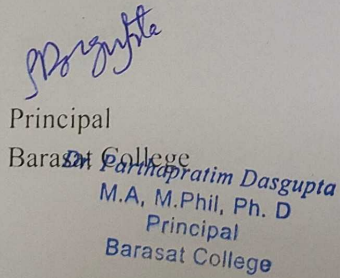 PDasgupta
Principal
Barasat College
Dr. Parthapratim Dasgupta
M.A, M.Phil, Ph. D
Principal
Barasat College